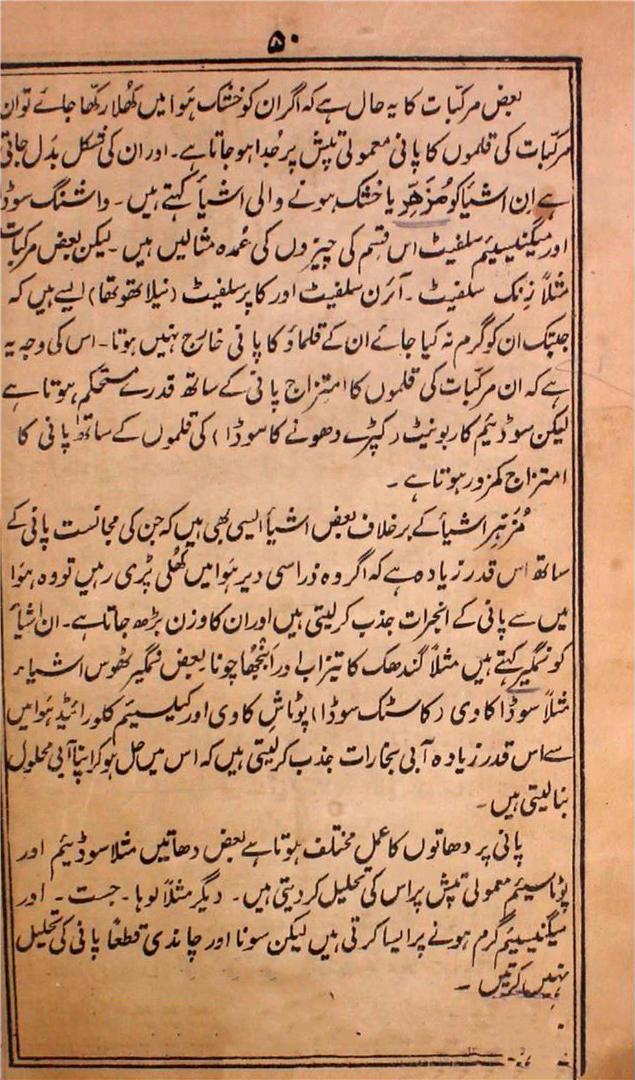 ۵۰
بعض مرکبات کا یہ حال ہے کہ اگر ان کو خشک ہَوا میں کُھلا رکھّا جائے تو ان
مرکبات کی قلموں کا پانی معمولی تپش پر جُدا ہو جاتا ہے۔ اور ان کی شکل بدل جاتی
ہے اِن اشیأ کو مُزَہّر یا خشک ہونے والی اشیأ کہتے ہیں۔ واشنگ سوڈا
اور میگنیسیئم سلفیٹ اس قسم کی چیزوں کی عُمدہ مثالیں ہیں۔ لیکن بعض مرکبات
مثلاً زِنک سلفیٹ۔ آئرن سلفیٹ اور کاپر سلفیٹ (نیلا تھوتھا) ایسے ہیں کہ
جبتک ان کو گرم نہ کیا جائے ان کے قلماؤ کا پانی خارج نہیں ہوتا۔ اس کی وجہ یہ
ہے کہ ان مرکبات کی قلموں کا امتزاج پانی کے ساتھ قدرے مستحکم ہوتا ہے
لیکن سوڈیئم کاربونیٹ (کپڑے دھونے کا سوڈا) کی قلموں کے ساتھ پانی کا
امتزاج کمزور ہوتا ہے۔
مُزَہّر اشیأ کے برخلاف بعض اشیأ ایسی بھی ہیں کہ جن کی مجانست پانی کے
ساتھ اس قدر زیادہ ہے کہ اگر وہ ذرا سی دیر ہوا میں کُھلی پڑی رہیں تو وہ ہوا
میں سے پانی کے انجرات جذب کر لیتی ہیں اور ان کا وزن بڑھ جاتا ہے۔ ان اشیأ
کو نمگیر کہتے ہیں مثلاً گندھک کا تیزاب اور اَنبُجھا چونا۔ بعض نمگیر ٹھوس اشیاء
مثلاً سوڈا کاوی (کاسٹک سوڈا) پوٹاش کاوی اور کیلسیئم کلورائیڈ ہوا میں
سے اس قدر زیادہ آبی بخارات جذب کر لیتی ہیں کہ اس میں حل ہو کر اپنا آبی محلول
بنا لیتی ہیں۔
پانی پر دھاتوں کا عمل مختلف ہوتا ہے بعض دھاتیں مثلاً سوڈیئم اور
پوٹاسیئم معمولی تپش پر اس کی تحلیل کر دیتی ہیں۔ دیگر مثلاً لوہا۔ جست۔ اور
میگنیسیئم گرم ہونے پر ایسا کرتی ہیں لیکن سونا اور چاندی قطعاً پانی کی تحلیل
نہیں کرتیں۔